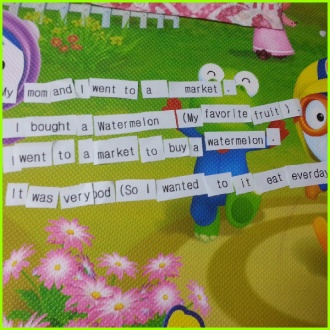 My mom and I went to a market .
I bought a Watermelon (My favorite fruit ) .
I went to a market to buy a watermelon .
It was very ood (So I wanted to it eat everday